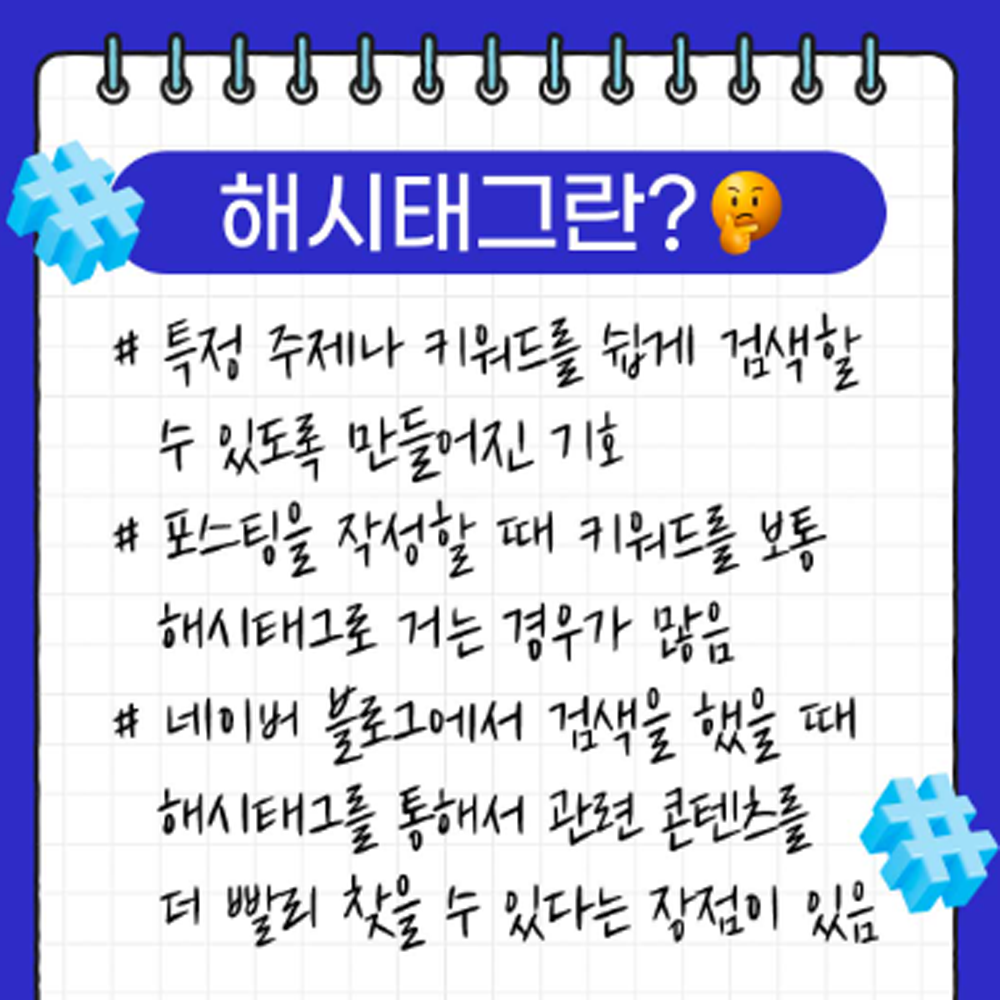 해시태그란?🤔
# 특정 주제나 키워드를 쉽게 검색할
수 있도록 만들어진 기호
# 포스팅을 작성할 때 키워드를 보통
해시태그로 거는 경우가 많음
# 네이버 블로그에서 검색을 했을 때
해시태그를 통해서 관련 콘텐츠를
더 빨리 찾을 수 있다는 장점이 있음